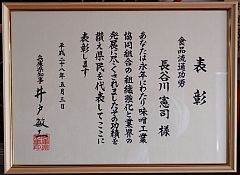 表彰
食品流通功労
長谷川憲司様
あなたは永年にわたり味噌工業
協同組合の組織強化と業界の
発展に尽くされましたその功績を
讃え県民を代表してここに
表彰します
平成二十八年五月三日
兵庫県知事 井戸敏三